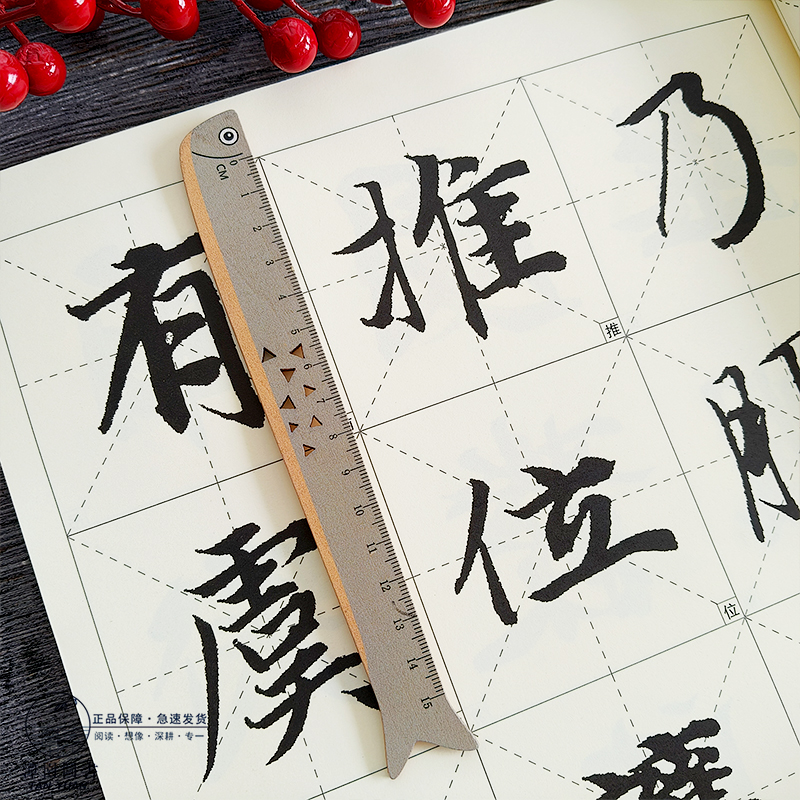 乃
推 推
位 位
有
虞
CM
0 1 2 3 4 5 6 7 8 9 10 11 12 13 14 15
正品保障·急速发货
阅读·想像·深耕·专一